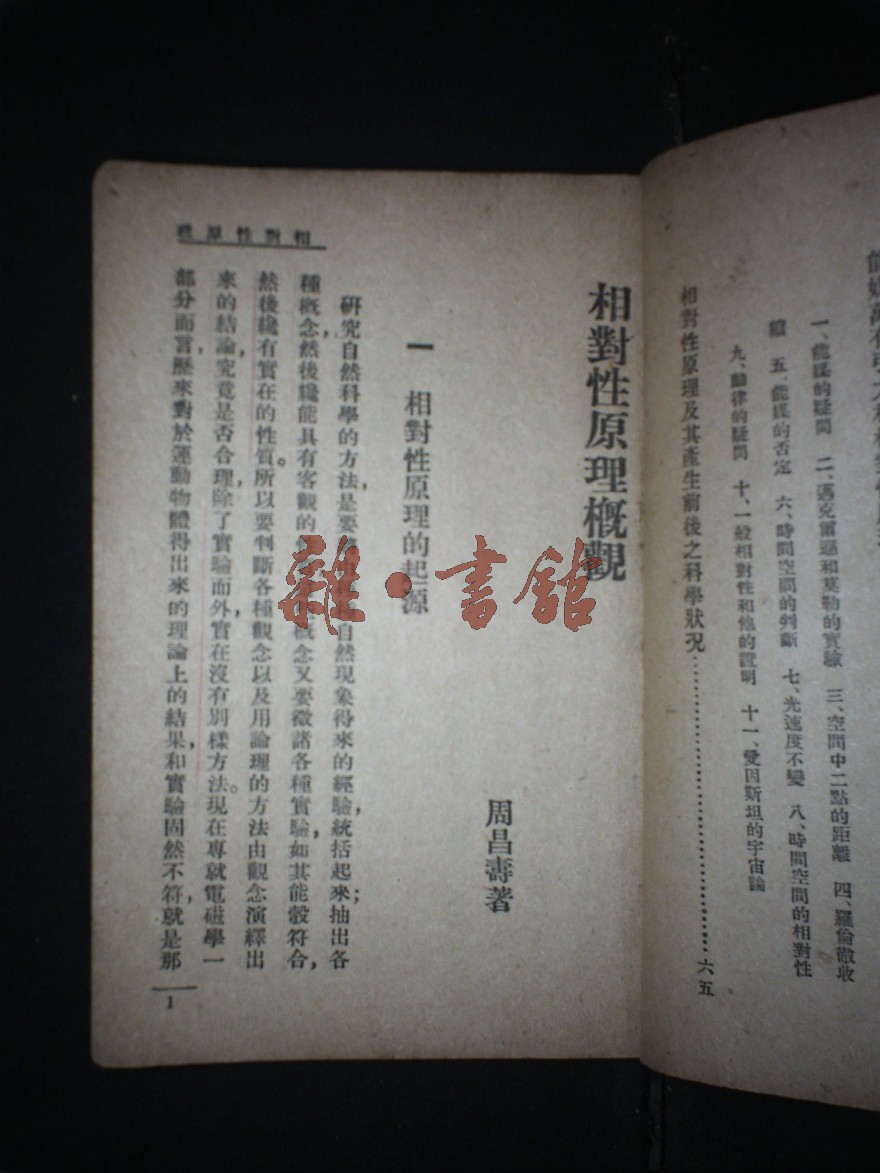 一、能媒的疑問　二、邁克爾遜和莫勒的實驗　三、空間中二點的距離　四、羅倫徹收
縮　五、能媒的否定　六、時間空間的判斷　七、光速度不變　八、時間空間的相對性
九、動律的疑問　十、一般相對性和他的證明　十一、愛因斯坦的宇宙論
相對性原理及其產生前後之科學狀況……………………六五
相對性原理
相對性原理概觀
周昌壽著
一　相對性原理的起源
研究自然科學的方法，是要自然現象得來的經驗，統括起來，抽出各
種概念，然後纔能具有客觀的概念又要徵諸各種實驗，如其能彀符合，
然後纔有實在的性質。所以要判斷各種觀念以及用論理的方法由觀念演繹出
來的結論，究竟是否合理，除了實驗而外，實在沒有別樣方法。現在專就電磁學一
部分而言，歷來對於運動物體得出來的理論上的結果，和實驗固然不符，就是那
1
雜·書館